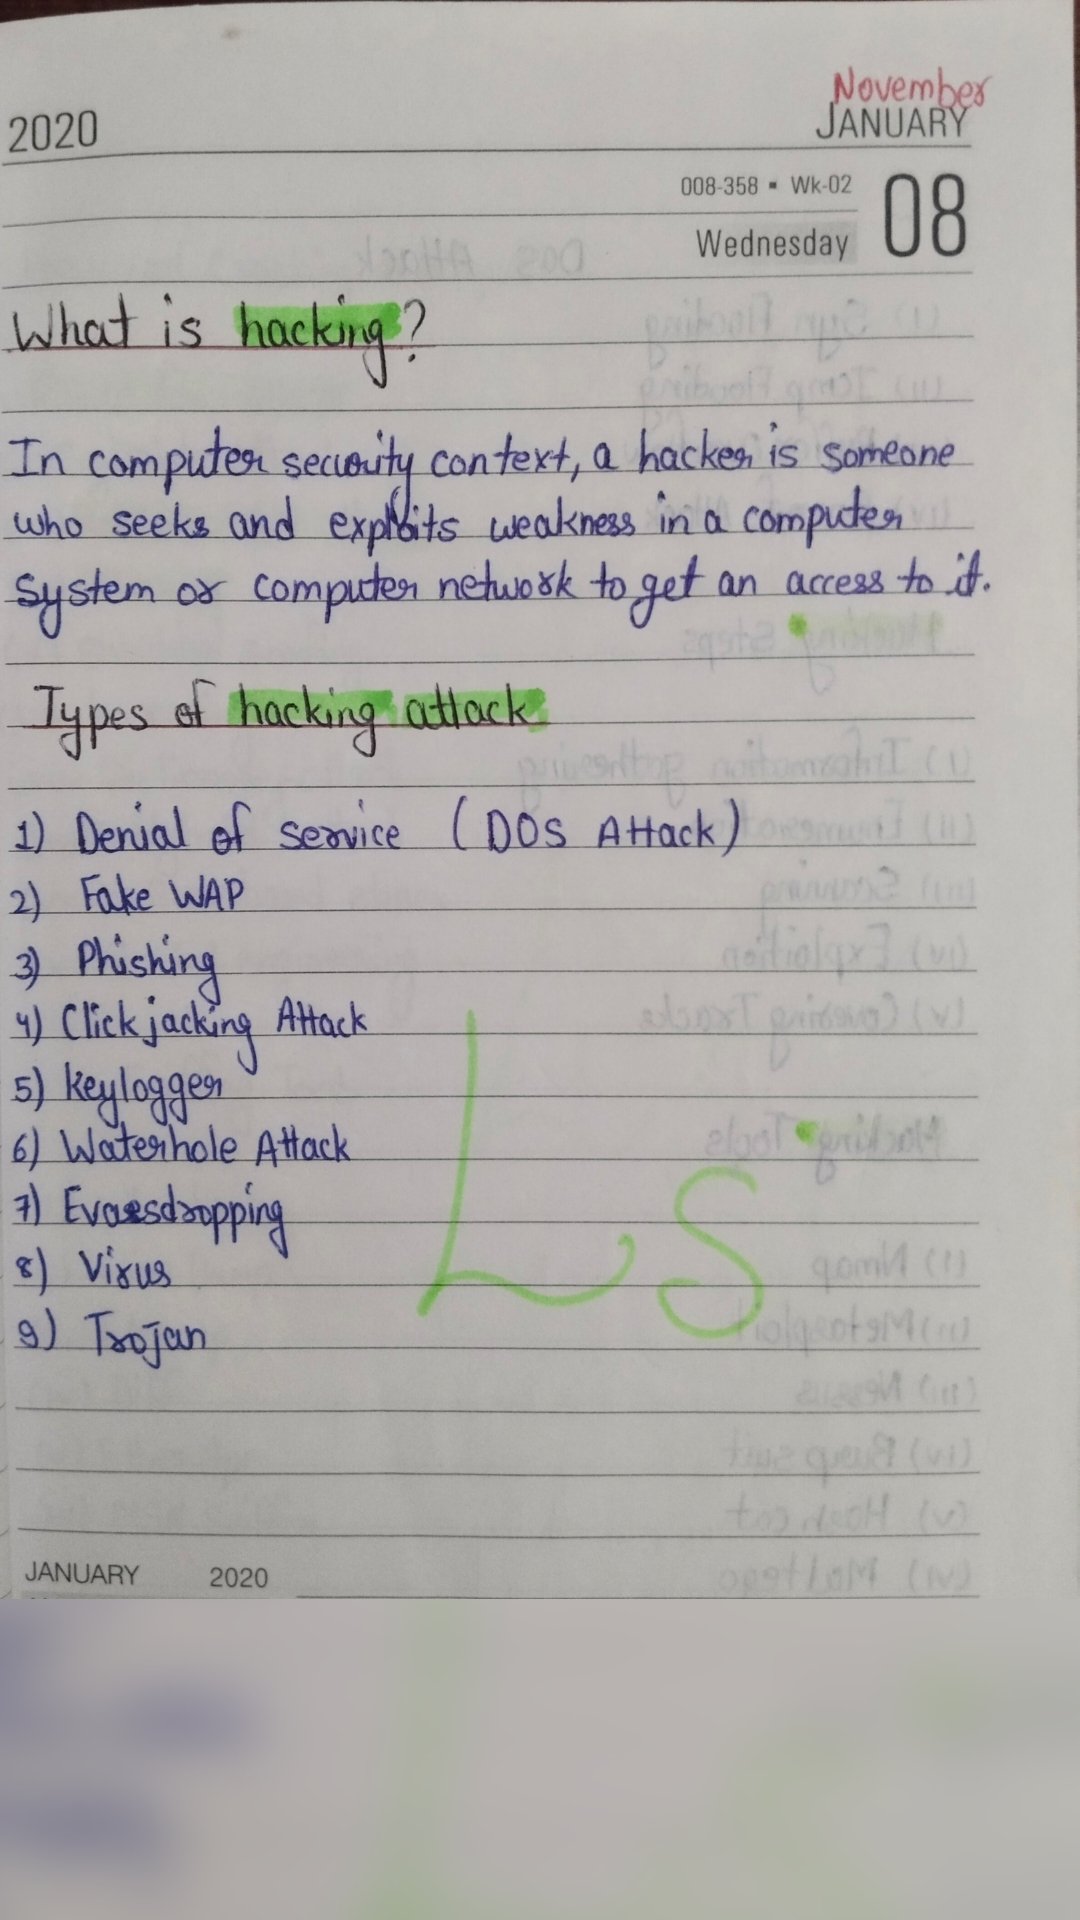 November
2020 JANUARY
008-358 ▪ Wk-02 08
Wednesday
What is hacking?
In computer security context, a hacker is someone
who seeks and exploits weakness in a computer
System or computer network to get an access to it.
Types of hacking attack
1) Denial of service (DOS Attack)
2) Fake WAP
3) Phishing
4) Clickjacking Attack
5) keylogger
6) Waterhole Attack
7) Evaesdropping
8) Virus
9) Trojan
LS
JANUARY 2020